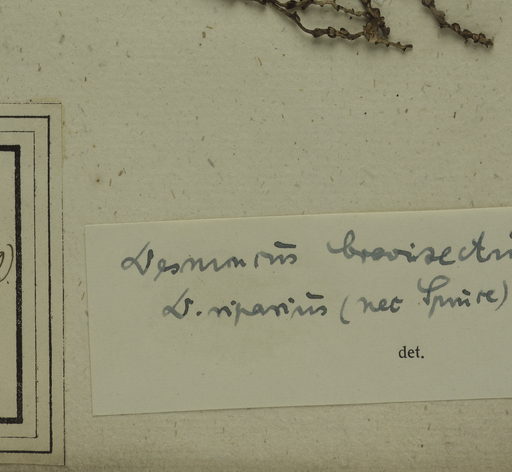 Desmoncus brevisectus
D. riparius (nec Spruce)
det.